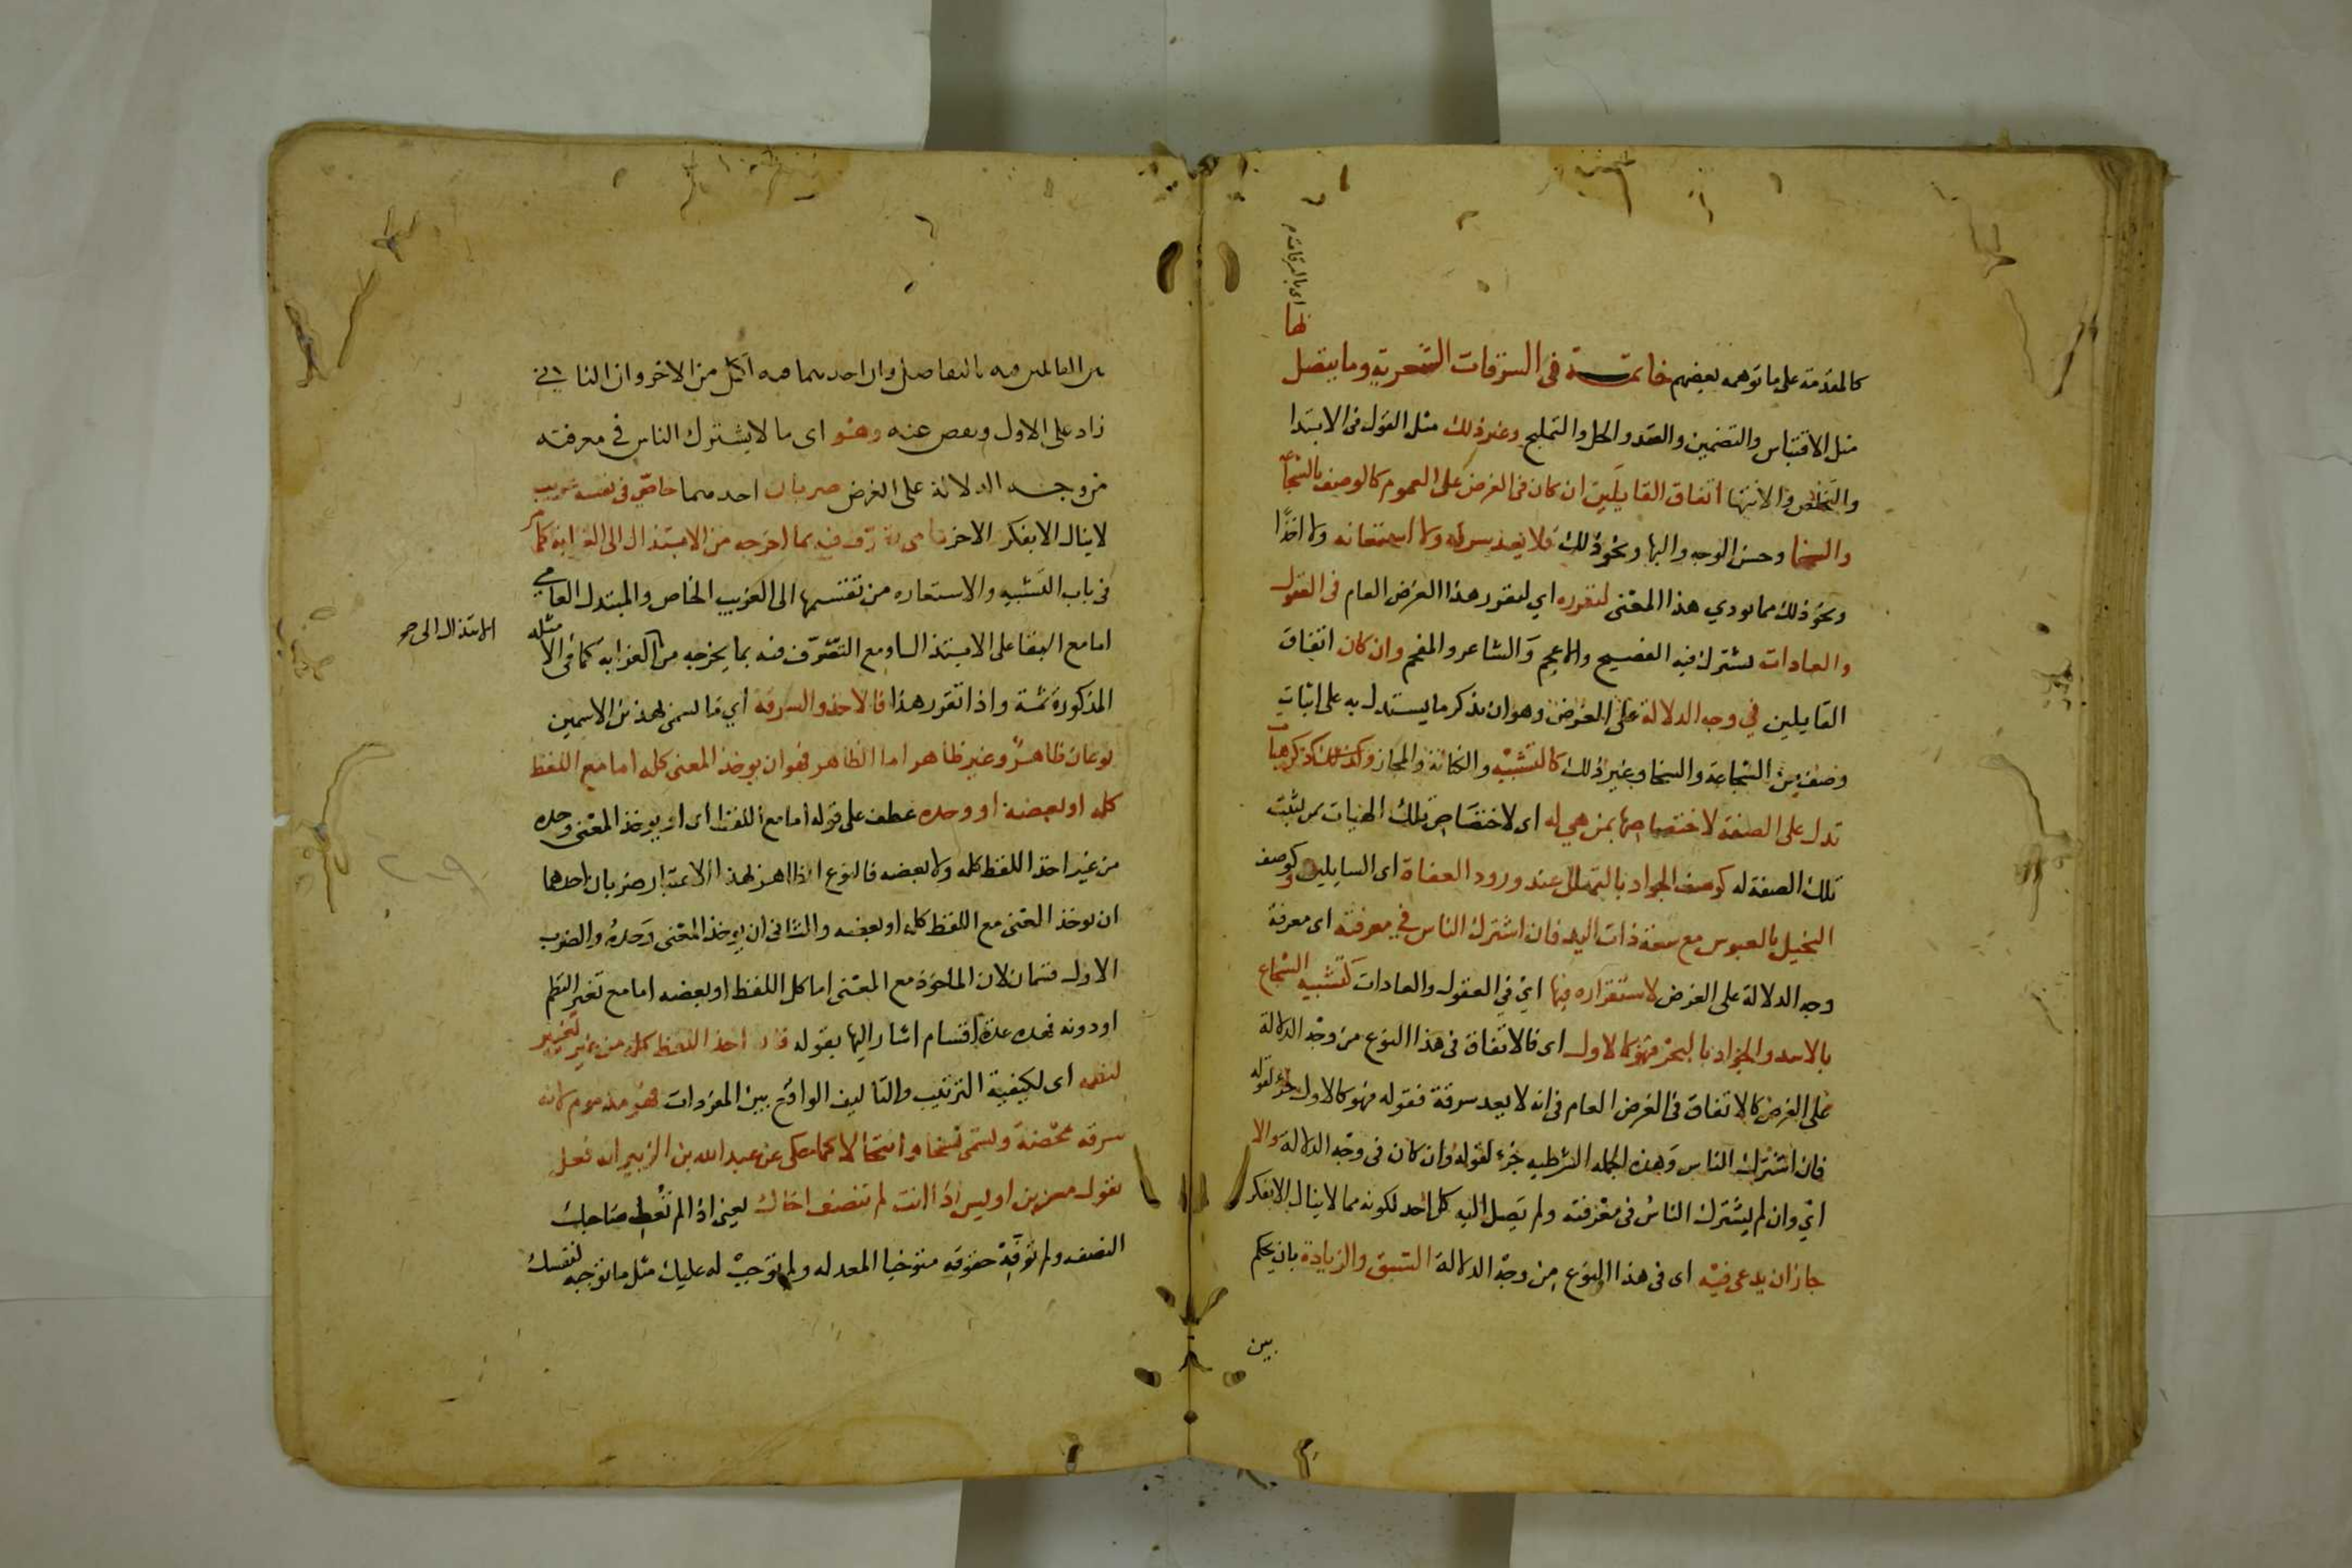 كالمقدمة على ما توهمه بعضهم خاتمة فى السرقات الشعرية وما يتصل
بها
اى بالسرقات
مثل الاقتباس والتضمين والعقد والحل والتلميح وغير ذلك مثل القول فى الابتدا
والتخلص والانتها اتفاق القايلين ان كان فى الغرض على العموم كالوصف بالشجاعة
والسخا وحسن الوجه والبها ونحو ذلك فلا يعد سرقة ولا استعانه ولا اخذًا
ونحو ذلك مما يودي هذا المعنى لتقرره اي لتقرر هذا الغرض العام فى العقول
والعادات يشترك فيه الفصيح والاعجم والشاعر والمفحم وان كان اتفاق
القايلين في وجه الدلالة على الغرض وهو ان يذكر ما يستدل به على اثبات
وصف من الشجاعة والسخا وغير ذلك كالتشبيه والكناية والمجاز وكذلك كذكر هيات
تدل على الصفة لاختصاصها بمن هي له اى لاختصاص تلك الهيات بمن يثبت
تلك الصفة له كوصف الجواد بالتهلل عند ورود العفاة اى السايلين وكوصف
البخيل بالعبوس مع سعة ذات اليد فان اشترك الناس في معرفته اى معرفة
وجه الدلالة على الغرض لاستقراره فيها اي في العقول والعادات كتشبيه الشجاع
بالاسد والجواد بالبحر فهو كالاول اى فالاتفاق فى هذا النوع من وجه الدلالة
على الغرض كالاتفاق فى الغرض العام فى انه لا يعد سرقة فقوله فهو كالاول جزء لقوله
فان اشترك الناس وهذه الجمله الشرطيه جزء لقوله وان كان فى وجه الدلالة والا
اي وان لم يشترك الناس فى معرفته ولم يصل اليه كل احد لكونه مما لا ينال الا بفكر
جاز ان يدعى فيه اى فى هذا النوع من وجه الدلالة السبق والزيادة بان يحكم
بين
بين القايلين فيه بالتفاضل وان احدهما فيه اكمل من الاخر وان الثانى
زاد على الاول ونقص عنه وهو اى ما لا يشترك الناس في معرفته
من وجه الدلالة على الغرض ضربان احدهما خاصّي فى نفسه غريب
لا ينال الا بفكر الاخر عامى تصرف فيه بما اخرجه من الابتذال الى الغرابة كما مر
فى باب التشبيه والاستعاره من تقسيمها الى الغريب الخاص والمبتذل العامي
اما مع البقا على الابتذال او مع التصرف فيه بما يخرجه من الغرابه كما فى الامثله
الابتذال الى صح
المذكورة ثمة واذا تقرر هذا فالاخذ والسرقة اي ما يسمى بهذين الاسمين
نوعان ظاهر وغير ظاهر اما الظاهر فهو ان يوخذ المعنى كله اما مع اللفظ
كله او بعضه او وحده عطف على قوله اما مع اللفظ اى او يوخذ المعنى وحده
من غير اخذ اللفظ كله ولا بعضه فالنوع الظاهر بهذا الاعتبار ضربان احدهما
ان يوخذ المعنى مع اللفظ كله او بعضه والثانى ان يوخذ المعنى وحده والضرب
الاول قسمان لان الماخوذ مع المعنى اما كل اللفظ او بعضه اما مع تغير النظم
او دونه فهذه عدة اقسام اشار اليها بقوله فان اخذ اللفظ كله من غير تغيير
لنظمه اى لكيفية الترتيب والتاليف الواقع بين المفردات فهو مذموم لانه
سرقه محضة ويسمى نسخا وانتحالا كما حكى عن عبد الله بن الزبير انه فعل
بقول معن بن اوس اذا انت لم تنصف اخاك يعنى اذا لم تعط صاحبك
النصفه ولم توفه حقوقه متوخيا المعدله ولم توجب له عليك مثل ما توجبه لنفسك
٢٠٩